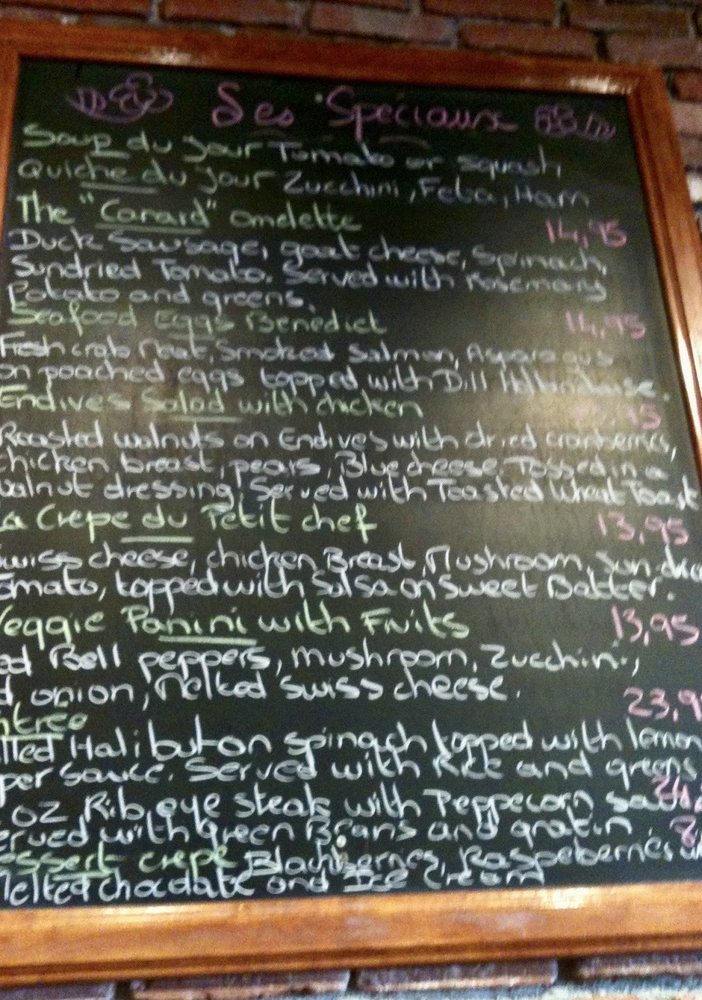 Les Speciaux
Soup du jour Tomato or squash,
Quiche du jour Zucchini, Feta, Ham
The "Canard" omelette 14,95
Duck Sausage, goat cheese, Spinach,
Sundried Tomato. Served with Rosemary
Potato and greens.
Seafood Eggs Benedict 14,95
Fresh crab meat, Smoked Salmon, Asparagus
on poached eggs topped with Dill Hollandaise.
Endives Salad with chicken
Roasted walnuts on Endives with dried cranberries,
chicken breast, pears, Blue cheese Tossed in a
walnut dressing, Served with Toasted Wheat Toast
La Crepe du Petit chef 13,95
Swiss cheese, chicken Breast, Mushroom, Sun dried
Tomato, topped with Salsa on Sweet Batter.
Veggie Panini with Fruits 13,95
Red Bell peppers, mushroom, Zucchini,
onion, Melted swiss cheese.
Entrée 23,9
Halibut on spinach topped with lemon
sauce. Served with Rice and greens
oz Rib eye steak with Peppecorn
Served with green Beans and gratin.
Dessert crepe Blackberries, Raspeberries
Melted chocolate and Ice Cream